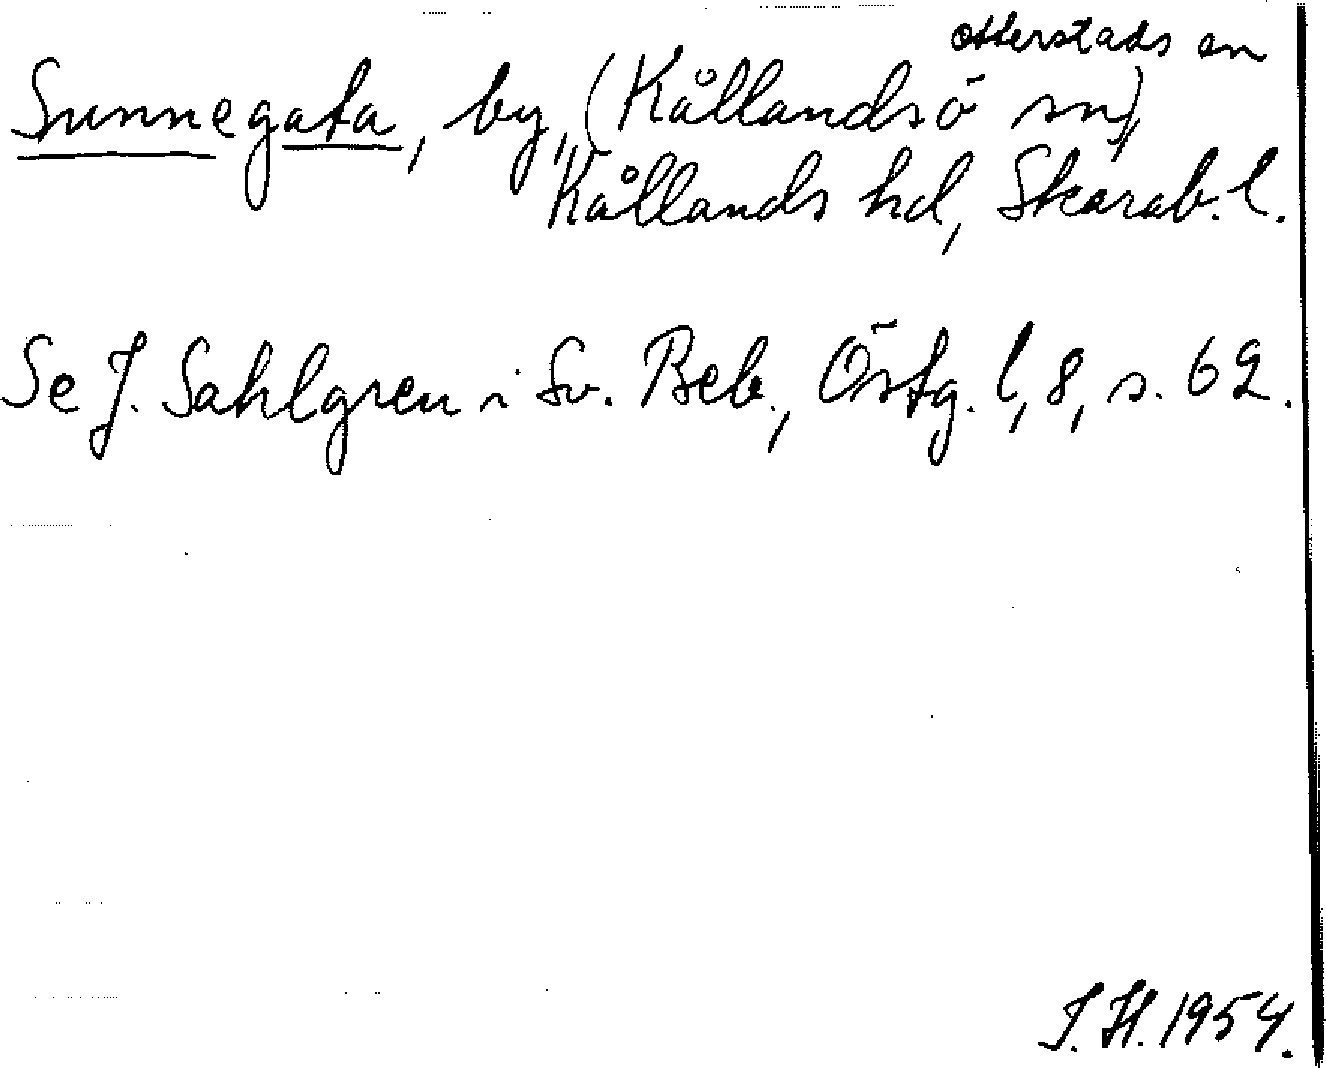 Otterstads sn
Sunnegata, by, (Kållandsö sn)
Kållands hd, Skarab. l.
Se J. Sahlgren i Sv. Beb., Östg. l, 8, s. 62.
I. H. 1954.